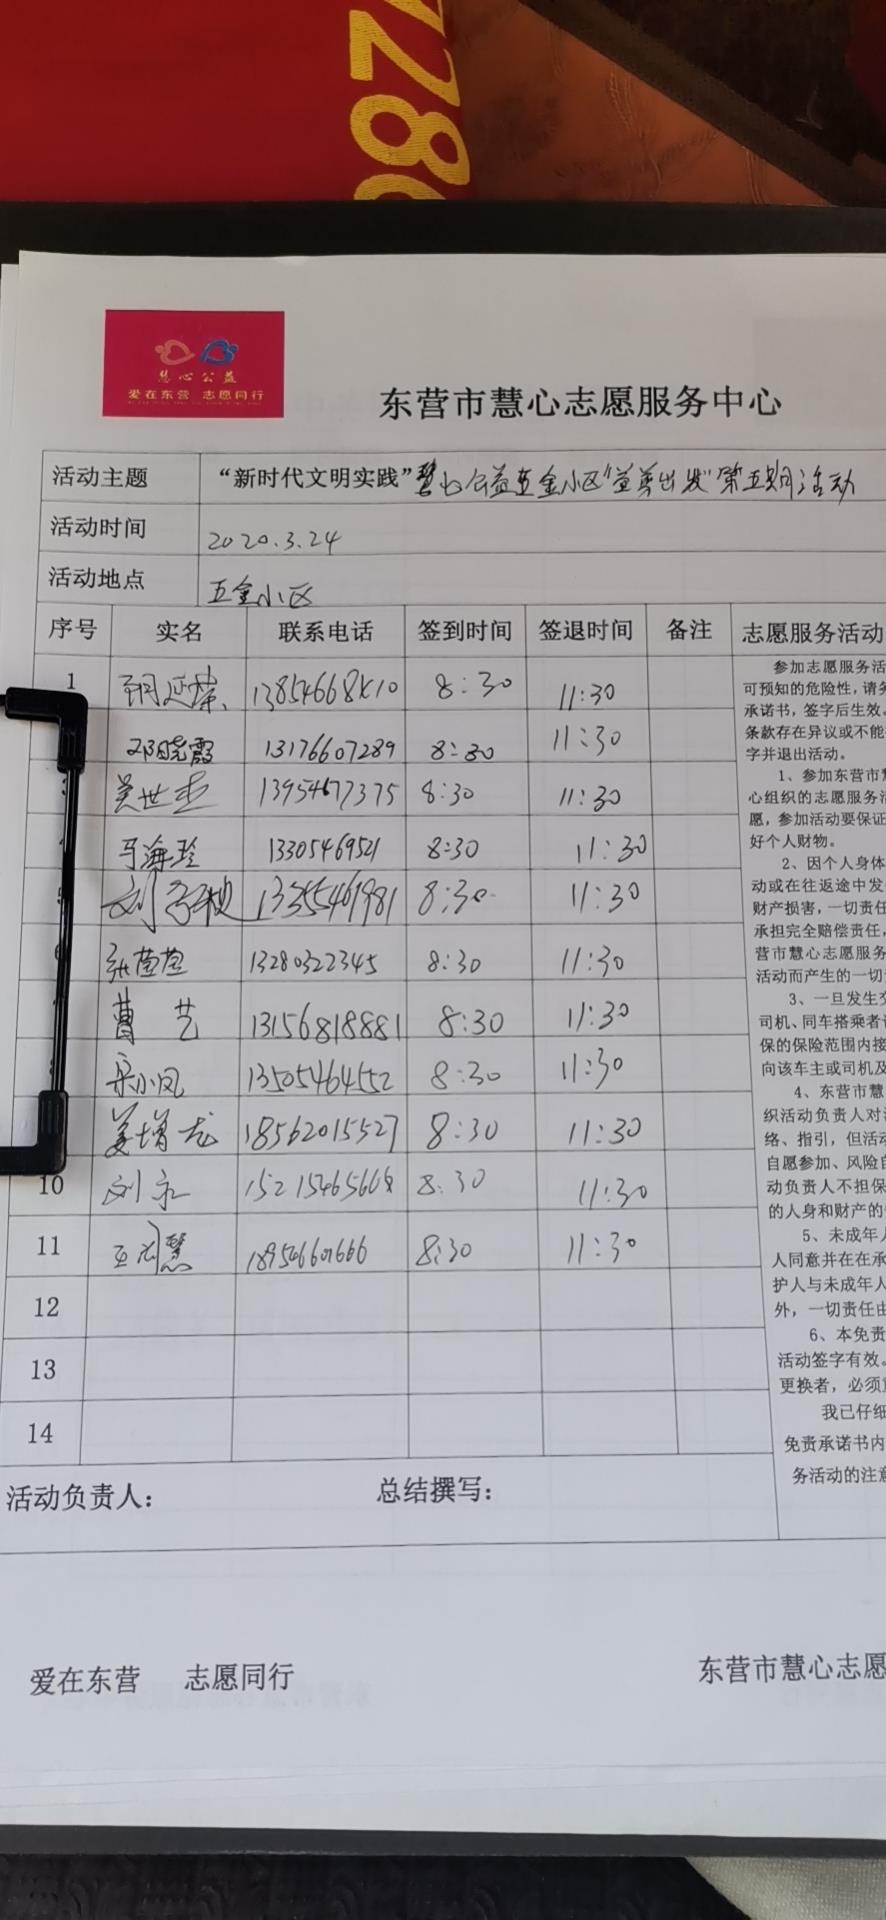 728
慧心公益
爱在东营 志愿同行
东营市慧心志愿服务中心
活动主题 “新时代文明实践”慧心公益五金小区“益剪出发”第五期活动
活动时间 2020.3.24
活动地点 五金小区
序号 实名 联系电话 签到时间 签退时间 备注 志愿服务活动
1 8:30 11:30
邓晓霞 13176607289 8:30 11:30
3 吴世杰 13954677375 8:30 11:30
马海玲 13305469521 8:30 11:30
5 刘 13355461981 8:30 11:30
6 张萱萱 13280322345 8:30 11:30
曹艺 13156818881 8:30 11:30
8 宋小凤 13505464552 8:30 11:30
姜增龙 18562015527 8:30 11:30
10 刘永 15215465608 8:30 11:30
11 慧 18954660666 8:30 11:30
12
13
14
参加志愿服务活
可预知的危险性,请务
承诺书,签字后生效。
条款存在异议或不能
字并退出活动。
1、参加东营市慧
心组织的志愿服务活
愿,参加活动要保证
好个人财物。
2、因个人身体
动或在往返途中发
财产损害,一切责任
承担完全赔偿责任,
营市慧心志愿服务
活动而产生的一切
3、一旦发生交
司机、同车搭乘者
保的保险范围内接
向该车主或司机及
4、东营市慧
织活动负责人对
络、指引,但活动
自愿参加、风险自
动负责人不担保
的人身和财产的
5、未成年人
人同意并在在承
护人与未成年人
外,一切责任由
6、本免责
活动签字有效。
更换者,必须
我已仔细
免责承诺书内
务活动的注意
活动负责人: 总结撰写:
爱在东营 志愿同行 东营市慧心志愿